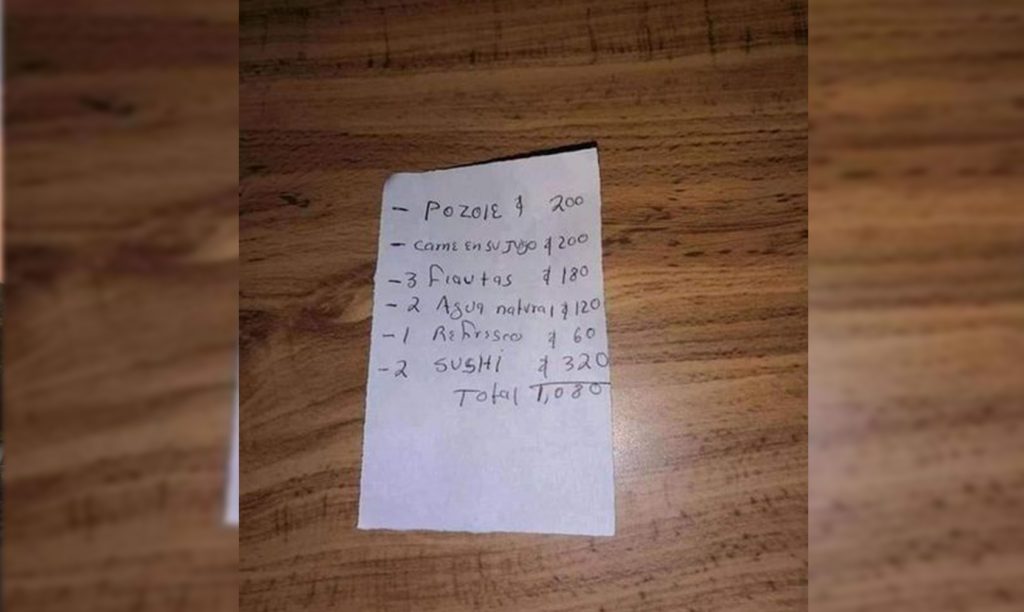 - POZOLE $ 200
- Carne EN SU JUGO $ 200
- 3 flautas $ 180
- 2 Agua natural $ 120
- 1 Refresco $ 60
- 2 SUSHI $ 320
Total 1,080